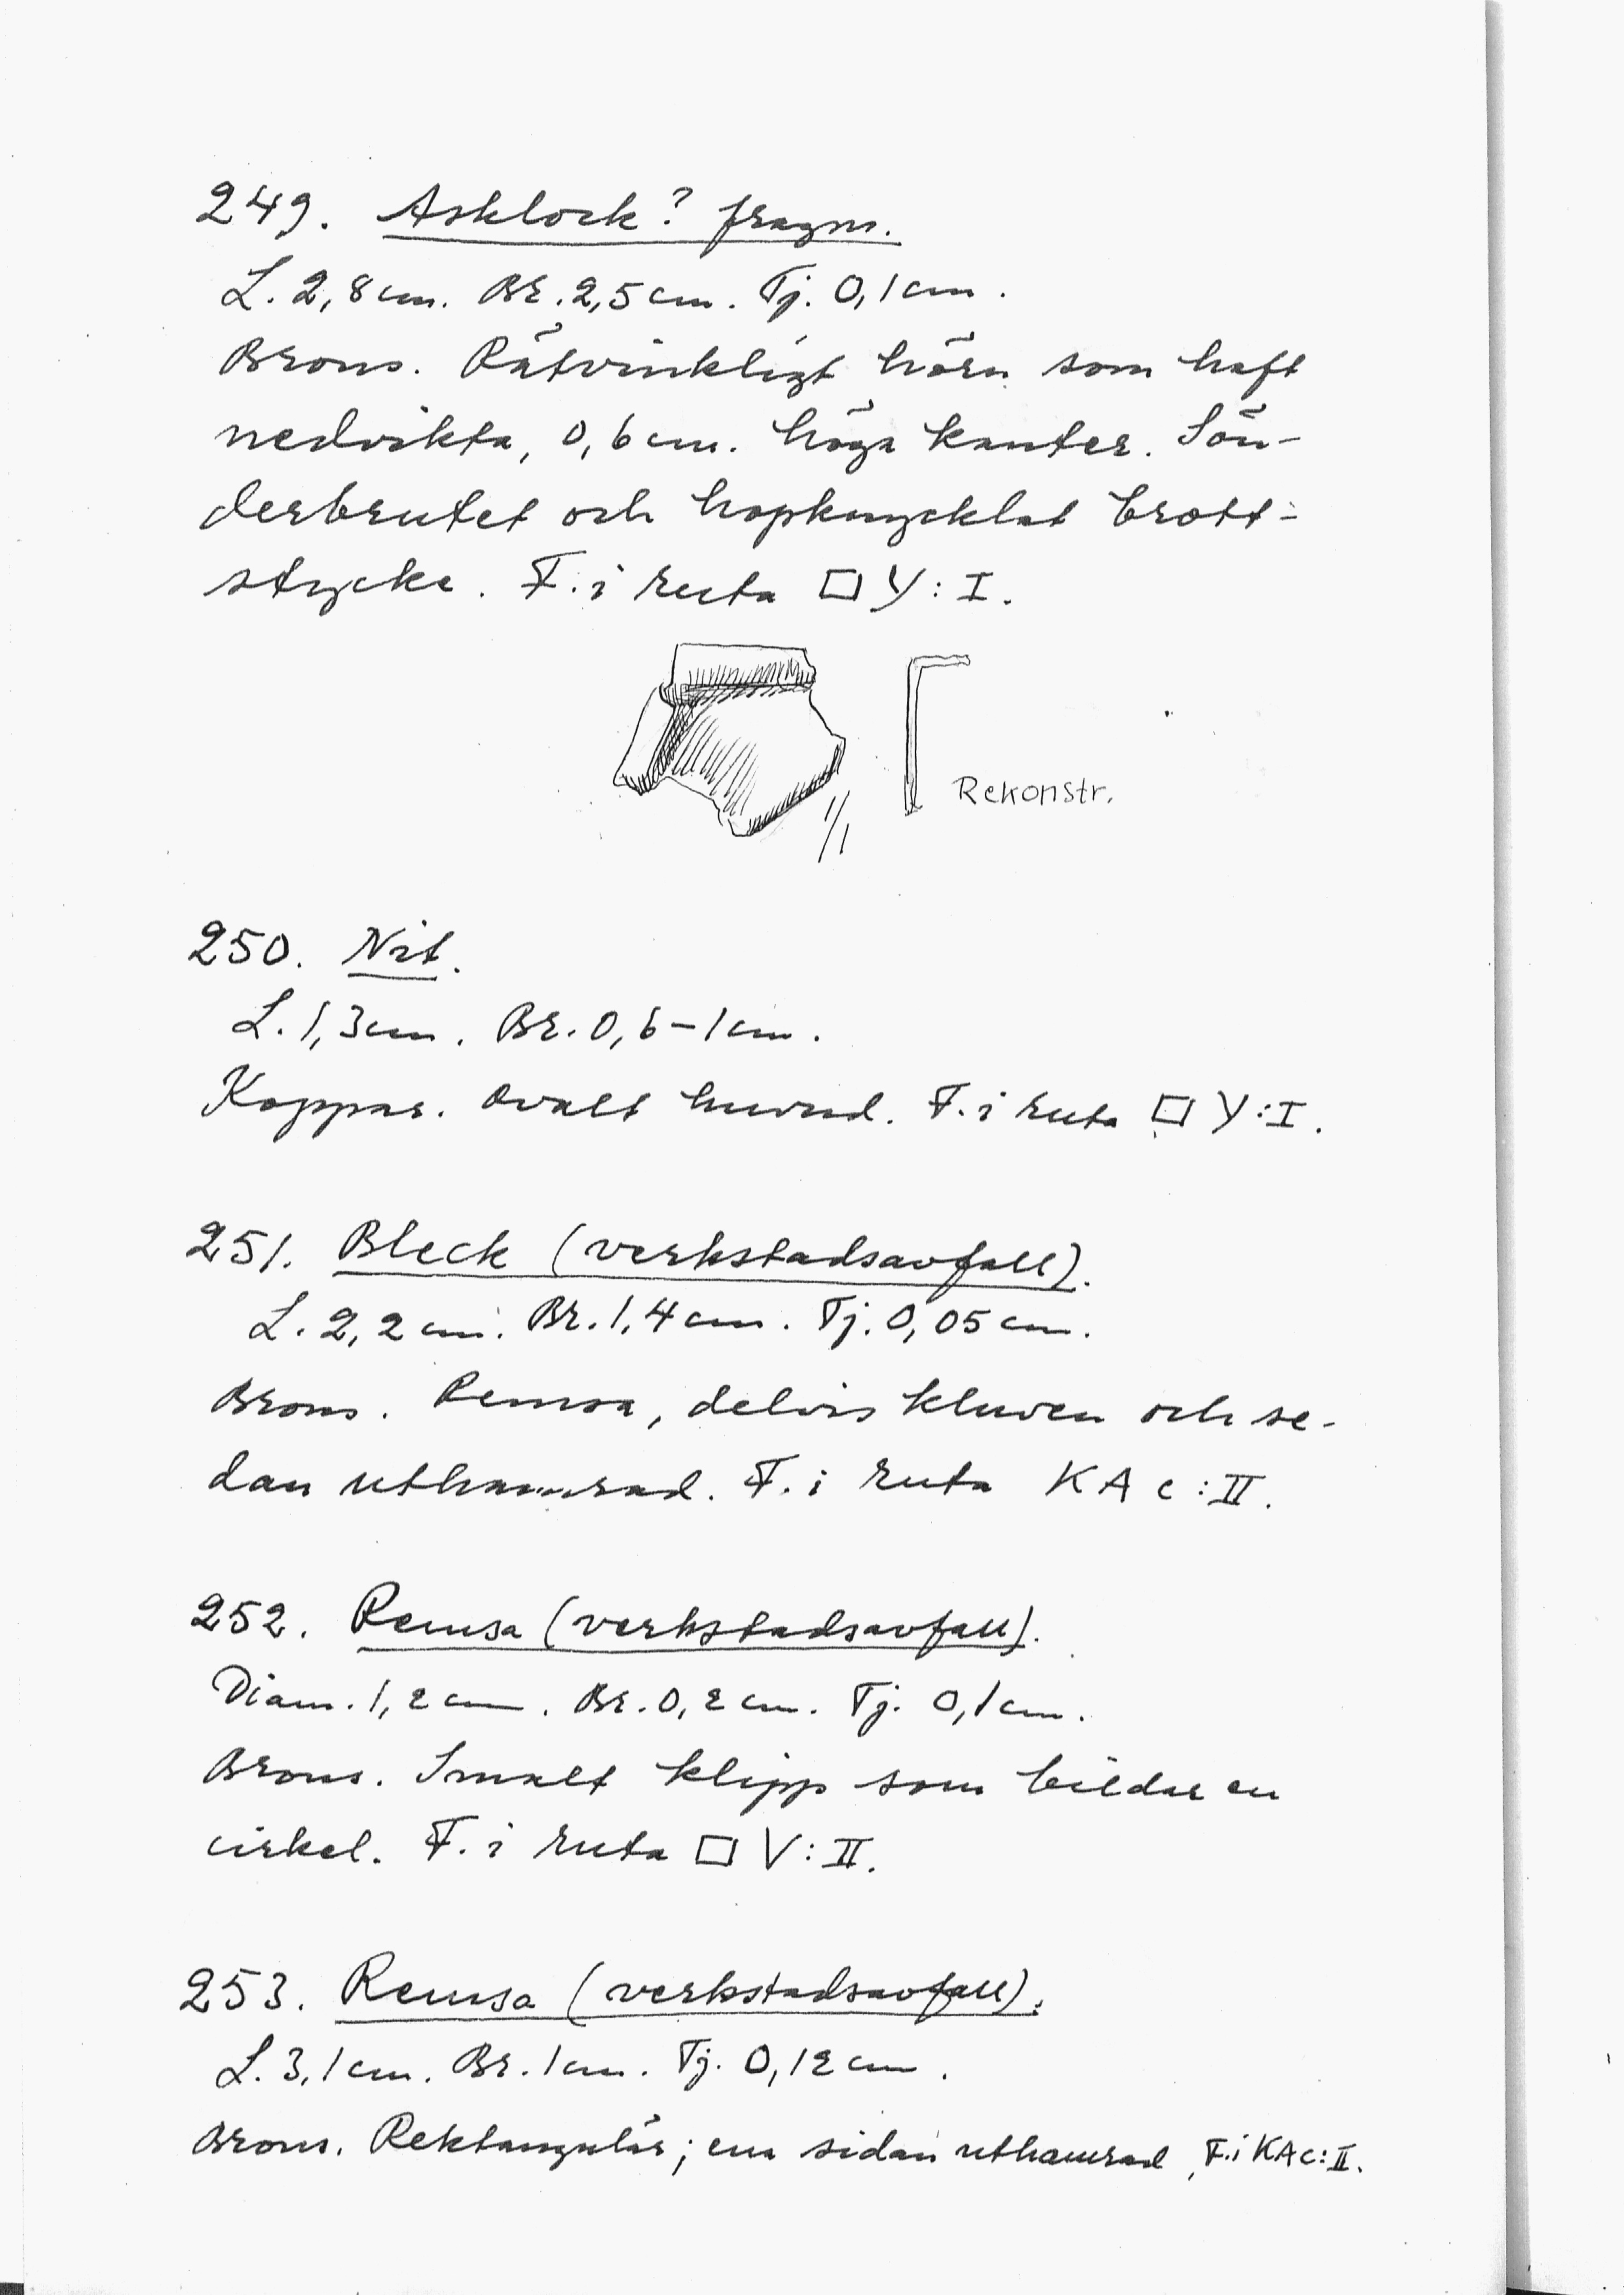 249. Asklock? fragm.
L. 2,8 cm. Br. 2,5 cm. Tj. 0,1 cm.
Brons. Rätvinkligt hörn som haft
nedvikta, 0,6 cm. höga kanter. Sön-
derbrutet och hopknycklat brott-
stycke. F. i ruta □ Y: I.
1/1
Rekonstr.
250. Nit.
L. 1,3 cm. Br. 0,6-1 cm.
Koppar. Ovalt huvud. F. i ruta □ Y: I.
251. Bleck (verkstadsavfall).
L. 2,2 cm. Br. 1,4 cm. Tj. 0,05 cm.
Brons. Remsa, delvis kluven och se-
dan uthamrad. F. i ruta KA c: II.
252. Remsa (verkstadsavfall).
Diam. 1,2 cm. Br. 0,2 cm. Tj. 0,1 cm.
Brons. Smalt klipp som bildar en
cirkel. F. i ruta □ V: II.
253. Remsa (verkstadsavfall).
L. 3,1 cm. Br. 1 cm. Tj. 0,12 cm.
Brons. Rektangulär; ena sidan uthamrad, F. i KA c: II.